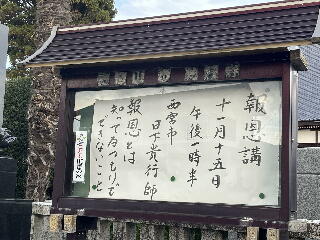 報恩講
十一月十五日
午後一時半
西宮市
日下貴行師
報恩とは
知ってるつもりで
できないこと